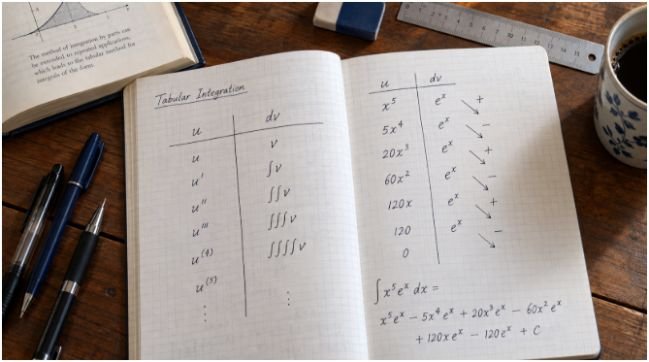 The method of integration by parts can
be extended to repeated applications,
which leads to the tabular method for
integrals of the form.
Tabular Integration
u dv
u v
u' ∫v
u'' ∫∫v
u''' ∫∫∫v
u⁽⁴⁾ ∫∫∫∫v
u⁽⁵⁾
⋮ ⋮
u dv
x⁵ eˣ +
5x⁴ eˣ −
20x³ eˣ +
60x² eˣ −
120x eˣ +
120 eˣ −
0
∫x⁵eˣ dx =
x⁵eˣ − 5x⁴eˣ + 20x³eˣ − 60x²eˣ
+ 120xeˣ − 120eˣ + C